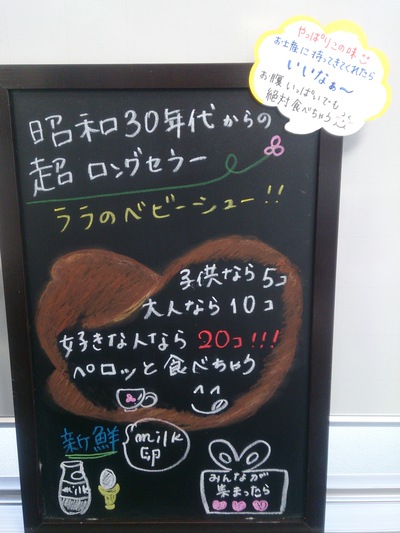 やっぱりこの味
お土産に持ってきてくれたら
いいなぁ〜
お腹いっぱいでも
絶対食べちゃう
昭和30年代からの
超ロングセラー
ララのベビーシュー!!
子供なら5コ
大人なら10コ
好きな人なら20コ!!!
ペロッと食べちゃう
新鮮
milk
Ep
milk
みんなが
集まったら